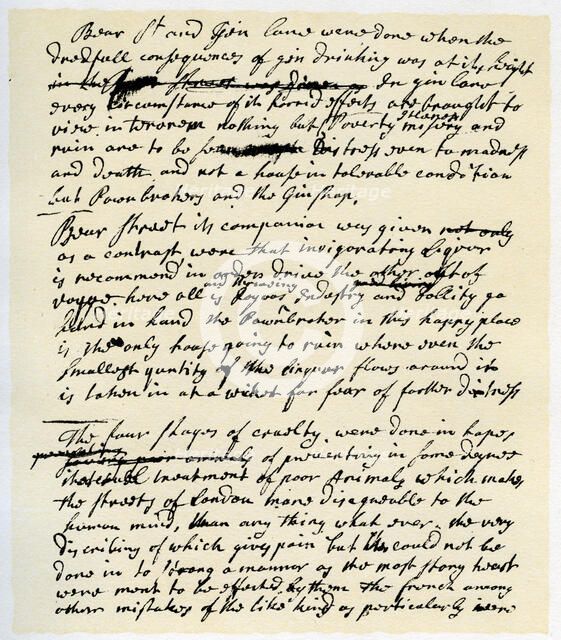 Bear St and Gin lane were done when the
dredfull consequences of gin drinking was at its hight
in the street was dines In gin lane
every circumstance of its horrid effects are brought to
view in terorem nothing but Poverty Idleness misery and
ruin are to be seen Distress even to madness
and death and not a house in tolerable condition
but Pawnbrokers and the Ginshop
Bear Street its companion was given not only
as a contrast were that invigorating liquor
is recommend in order drive the other out of
vogue. here all is Joyous Industry and Jollity go
and thriveing
hand in hand the Pawnbroker in this happy place
is the only house going to ruin where even the
smallest quntity of the linquor flows around it
is taken in at a wicket for fear of farther distress
The four stages of cruelty were done in hopes
of preventing in some degree
that cruel treatment of poor Animals which makes
the streets of London more disagreable to the
human mind, than any thing what ever. the very
discribing of which gives pain but it could not be
done in to strong a mannor as the most stony heart
were ment to be effected by them the french among
other mistakes of the like kind as particularly were
Heritage